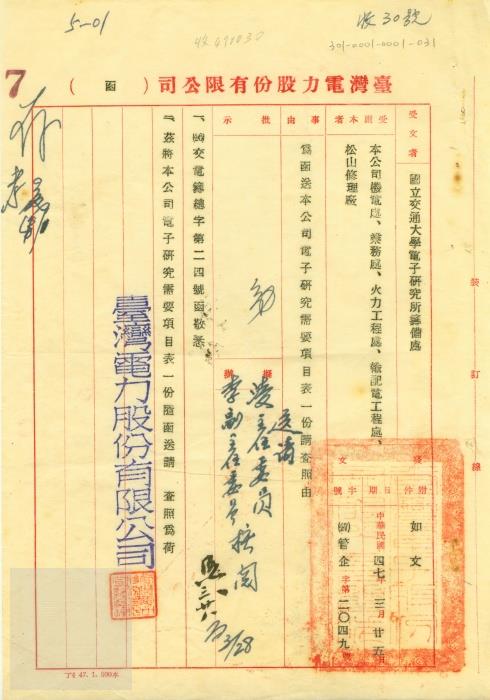 5-01
收30號
收491030
301-0001-0001-031
7
臺灣電力股份有限公司(函)
受文者
國立交通大學電子研究所籌備處
受副本者
本公司機電處、業務處、火力工程處、
松山修理廠
事由
為函送本公司電子研究需要項目表一份請查照由
批示
擬辦
送請
凌主任委員
李副主任委員核閱
3/28
發文
附件
如文
日期
中華民國四七年三月廿五日
字號
管企字第二〇四九號
一、交電籌總字第二四號函敬悉。
二、茲將本公司電子研究需要項目表一份隨函送請 查照為荷
臺灣電力股份有限公司
裝訂線
47.1.500本